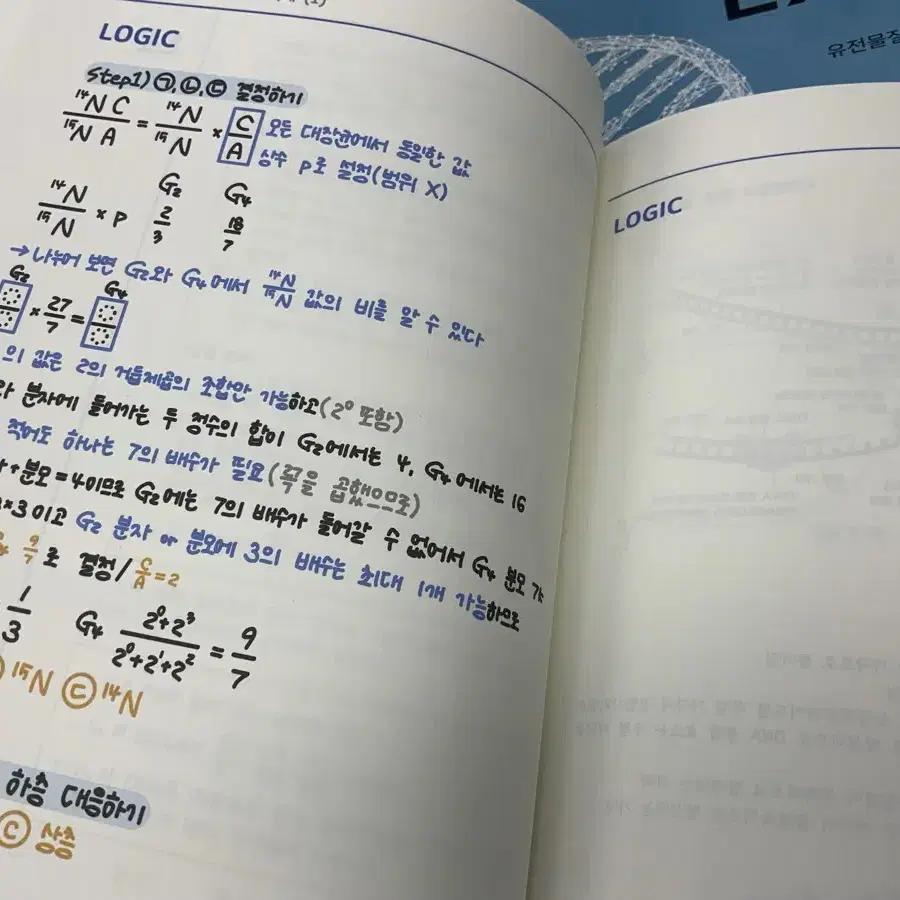 (1)
LOGIC
Step1) ㉠,㉡,㉢ 결정하기
¹⁴N C / ¹⁵N A = ¹⁴N / ¹⁵N × C / A 모든 대장균에서 동일한 값
상수 p로 설정(범위 X)
G₂ G₄
¹⁴N / ¹⁵N × p 2/3 18/7
→나누어 보면 G₂와 G₄에서 ¹⁴N / ¹⁵N 값의 비를 알 수 있다
G₂ G₄
× 27/7 =
의 값은 2의 거듭제곱의 조합만 가능하고(2⁰ 포함)
와 분자에 들어가는 두 정수의 합이 G₂에서는 4, G₄에서는 16
적어도 하나는 7의 배수가 필요(쪽을 곱했으므로)
+분모=4이므로 G₂에는 7의 배수가 들어갈 수 없어서 G₄ 분모 가
*3이고 G₂ 분자 or 분모에 3의 배수는 최대 1개 가능하므로
G₄ 9/7로 결정/ C/A=2
1/3 G₄ 2⁰+2³ / 2⁰+2¹+2² = 9/7
¹⁵N ㉢ ¹⁴N
하층 대응하기
㉢ 상층
유전물질
LOGIC